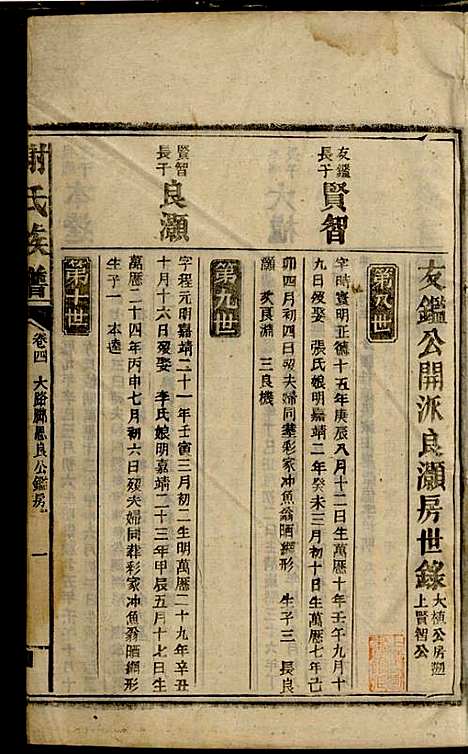 友鑑公開派良灝房世錄
大植公房遡
上賢智公
第八世
友鑑
長子
賢智
字時實明正德十五年庚辰八月十二日生萬曆十年壬午九月十
九日歿娶 張氏娘明嘉靖二年癸未三月初十日生萬曆七年己
卯四月初四日歿夫婦同葬彩家冲魚翁晒網形 生子三 長良
灝 次良淵 三良機
第九世
賢智
長子
良灝
字程元明嘉靖二十一年壬寅三月初二生明萬曆二十九年辛丑
十月十六日歿娶 李氏娘明嘉靖二十三年甲辰五月十七日生
萬曆二十四年丙申七月初六日歿夫婦同葬彩家冲魚翁晒網形
生子一 本遠
第十世
謝氏族譜
卷四
大路 良公鑑房
一